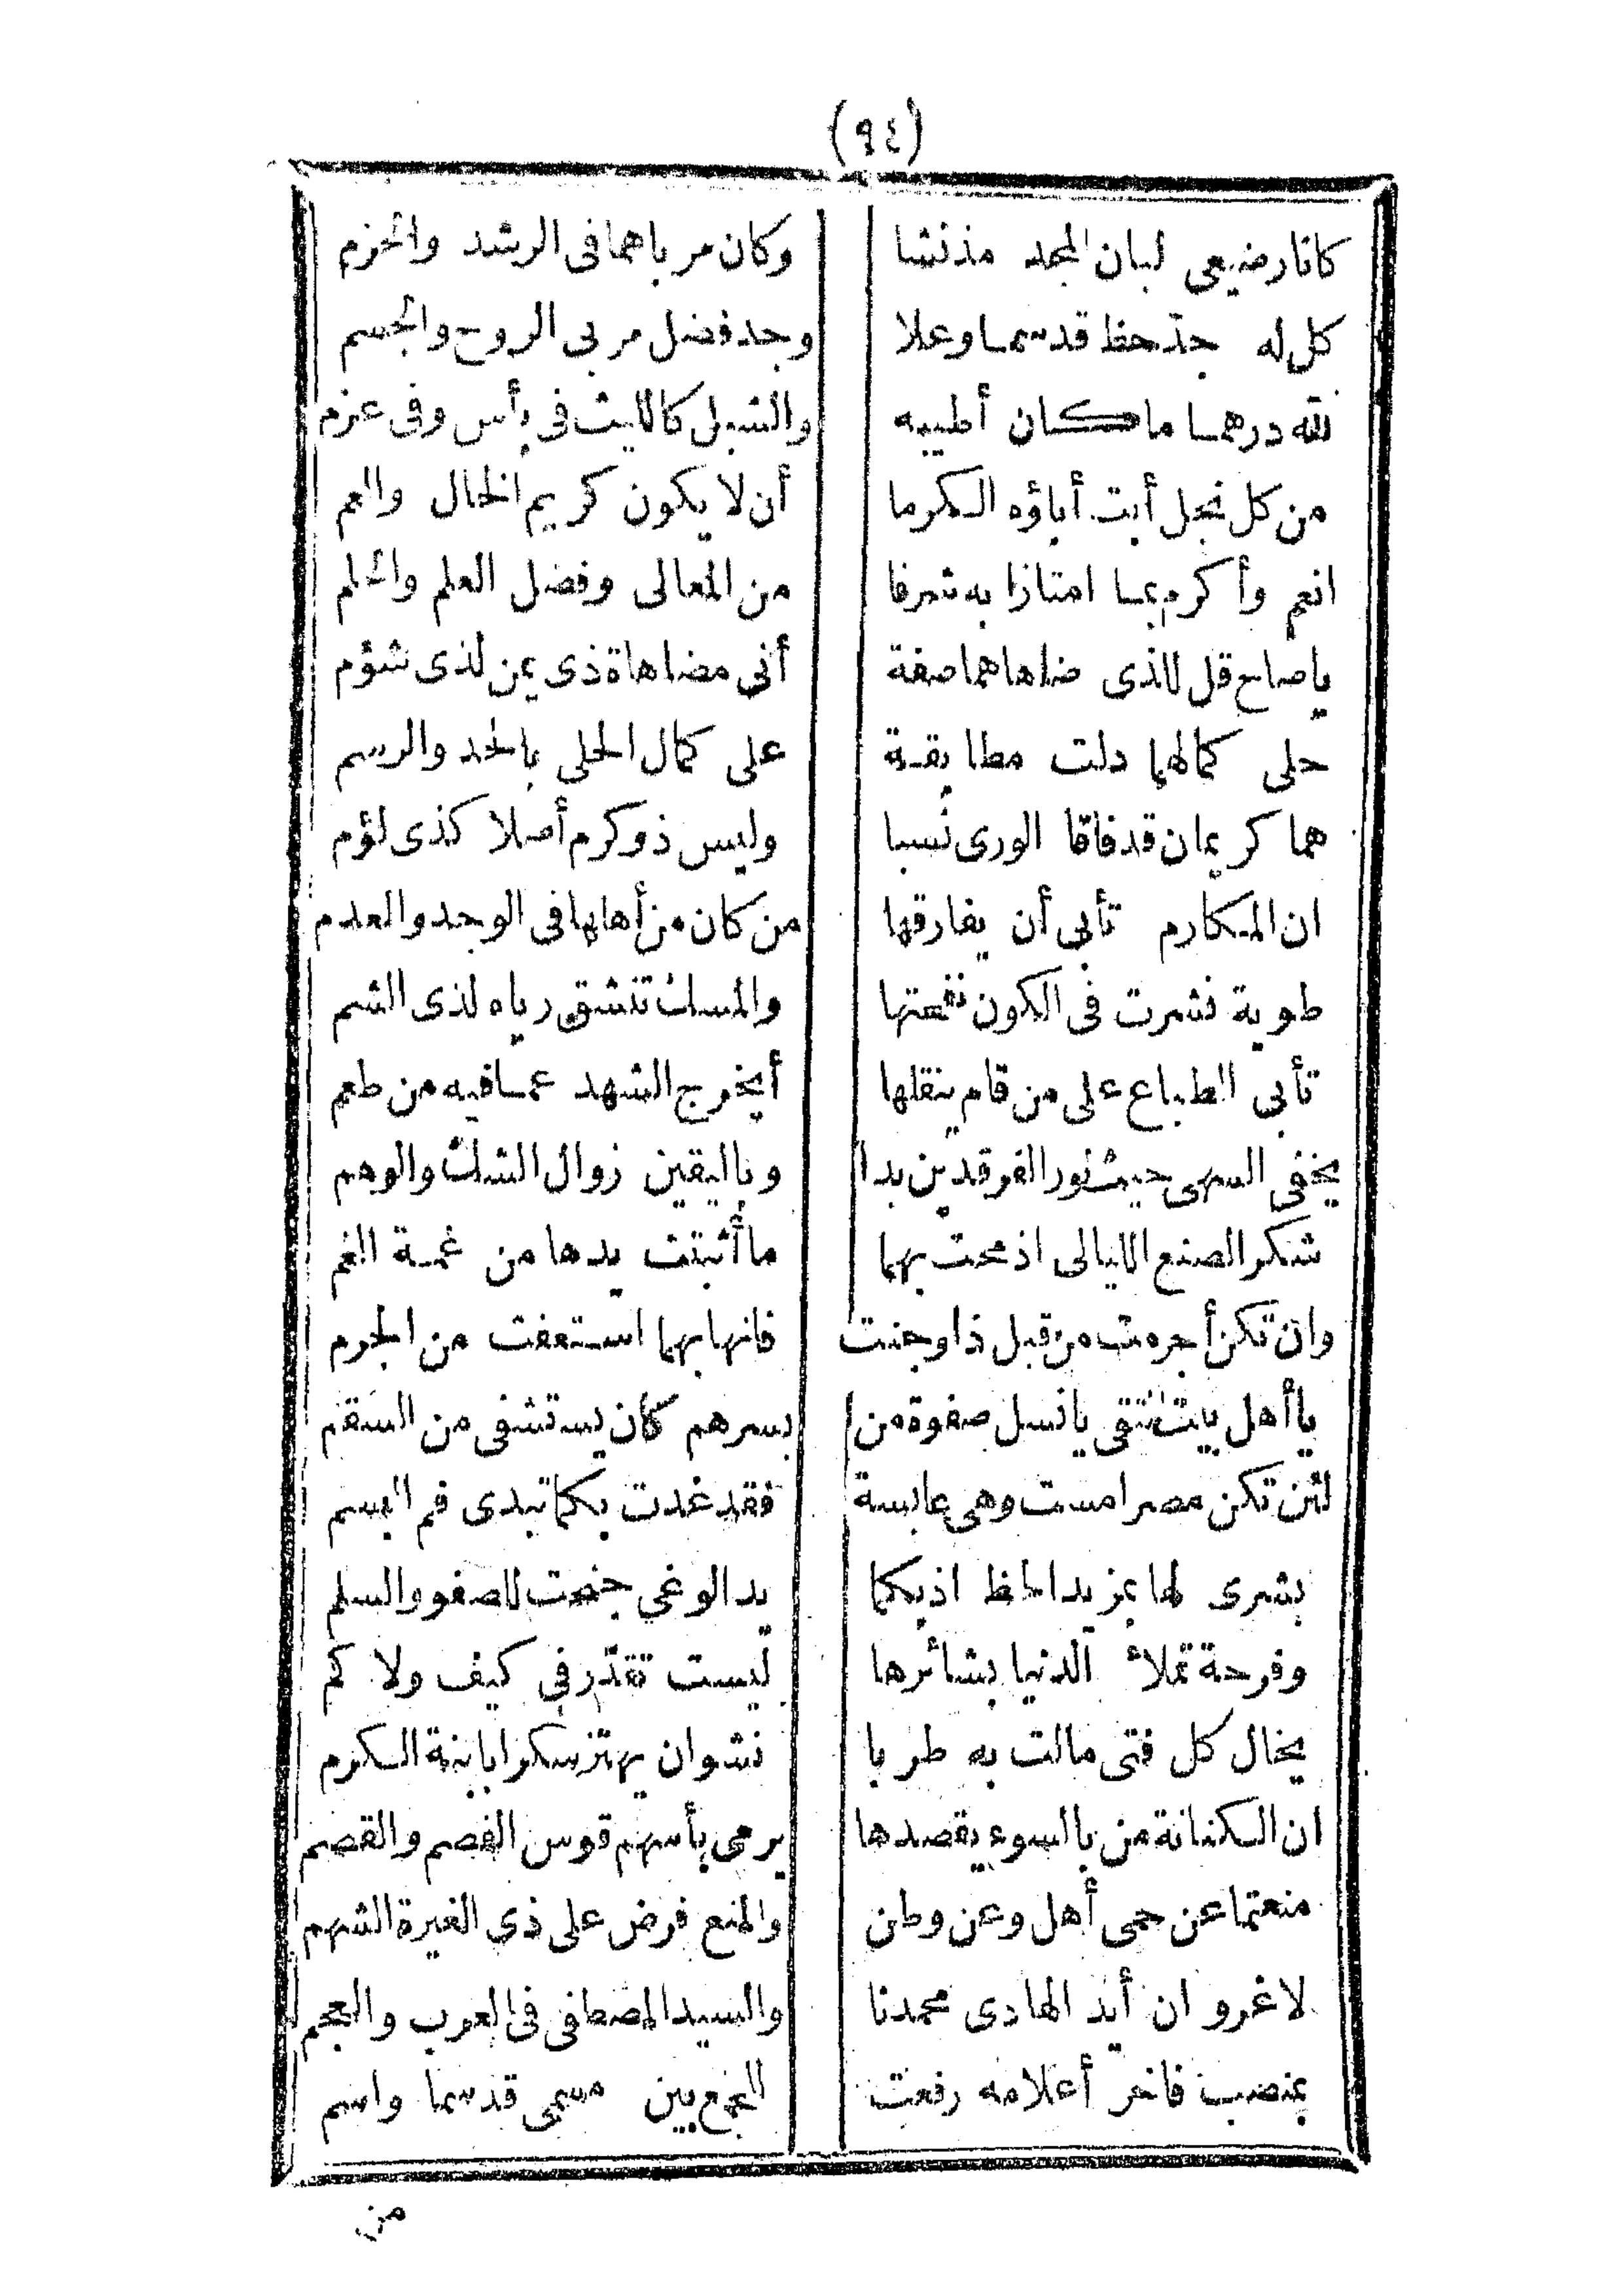 (٩٤)
كانا رضيعى لبان المجد مذ نشا وكان مرباهما فى الرشد والحزم
كل له جدّ حظ قد سما وعلا وجد فضل مربى الروح والجسم
لله درهما ما كان أطيبه والشبل كالليث فى بأس وفى عزم
من كل نجل أبت أباؤه الكرما أن لا يكون كريم الخال والعم
انعم وأكرم بما امتازا به شرفا من المعالى وفضل العلم والحلم
ياصاح قل للذى ضاهاهما صفة أنى مضاهاة ذى يمن لذى شؤم
حلى كمالهما دلت مطابقة على كمال الحلى بالحد والرسم
هما كريمان قد فاقا الورى نسبا وليس ذو كرم أصلا كذى لؤم
ان المكارم تأبى أن يفارقها من كان من أهلها فى الوجد والعدم
طوبة نشرت فى الكون نفحتها والمسك تنشق رياه لذى الشم
تأبى الطباع على من قام ينقلها أيخرج الشهد عما فيه من طعم
يخفى السهى حيث نور الفرقدين بدا وباليقين زوال الشك والوهم
شكر الصنع الليالى اذ محت بهما ما أثبتت يدها من غمة الغم
وان تكن أجرمت من قبل ذا وجنت فانها بهما استعفت من الجرم
يا أهل بيت التقى يا نسل صفوة من بسرهم كان يستشفى من السقم
لئن تكن مصر امست وهى عابسة فقد غدت بكما تبدى فم البسم
بشرى لها بمزيد الحظ اذ بكما يد الوغى جنحت للصفو والسلم
وفرحة تملأ الدنيا بشائرها ليست تقدّر فى كيف ولا كم
يخال كل فتى مالت به طربا نشوان يهتز سكرا بابنة الكرم
ان الكنانة من بالسوء يقصدها يرمى بأسهم قوس الفصم والقصم
منعتما عن حمى أهل وعن وطن والمنع فرض على ذى الغيرة الشهم
لا غرو ان أيد الهادى محمدنا والسيد المصطفى فى العرب والعجم
بمنصب فاخر أعلامه رفعت الجمع بين مسمى قد سما واسم
من